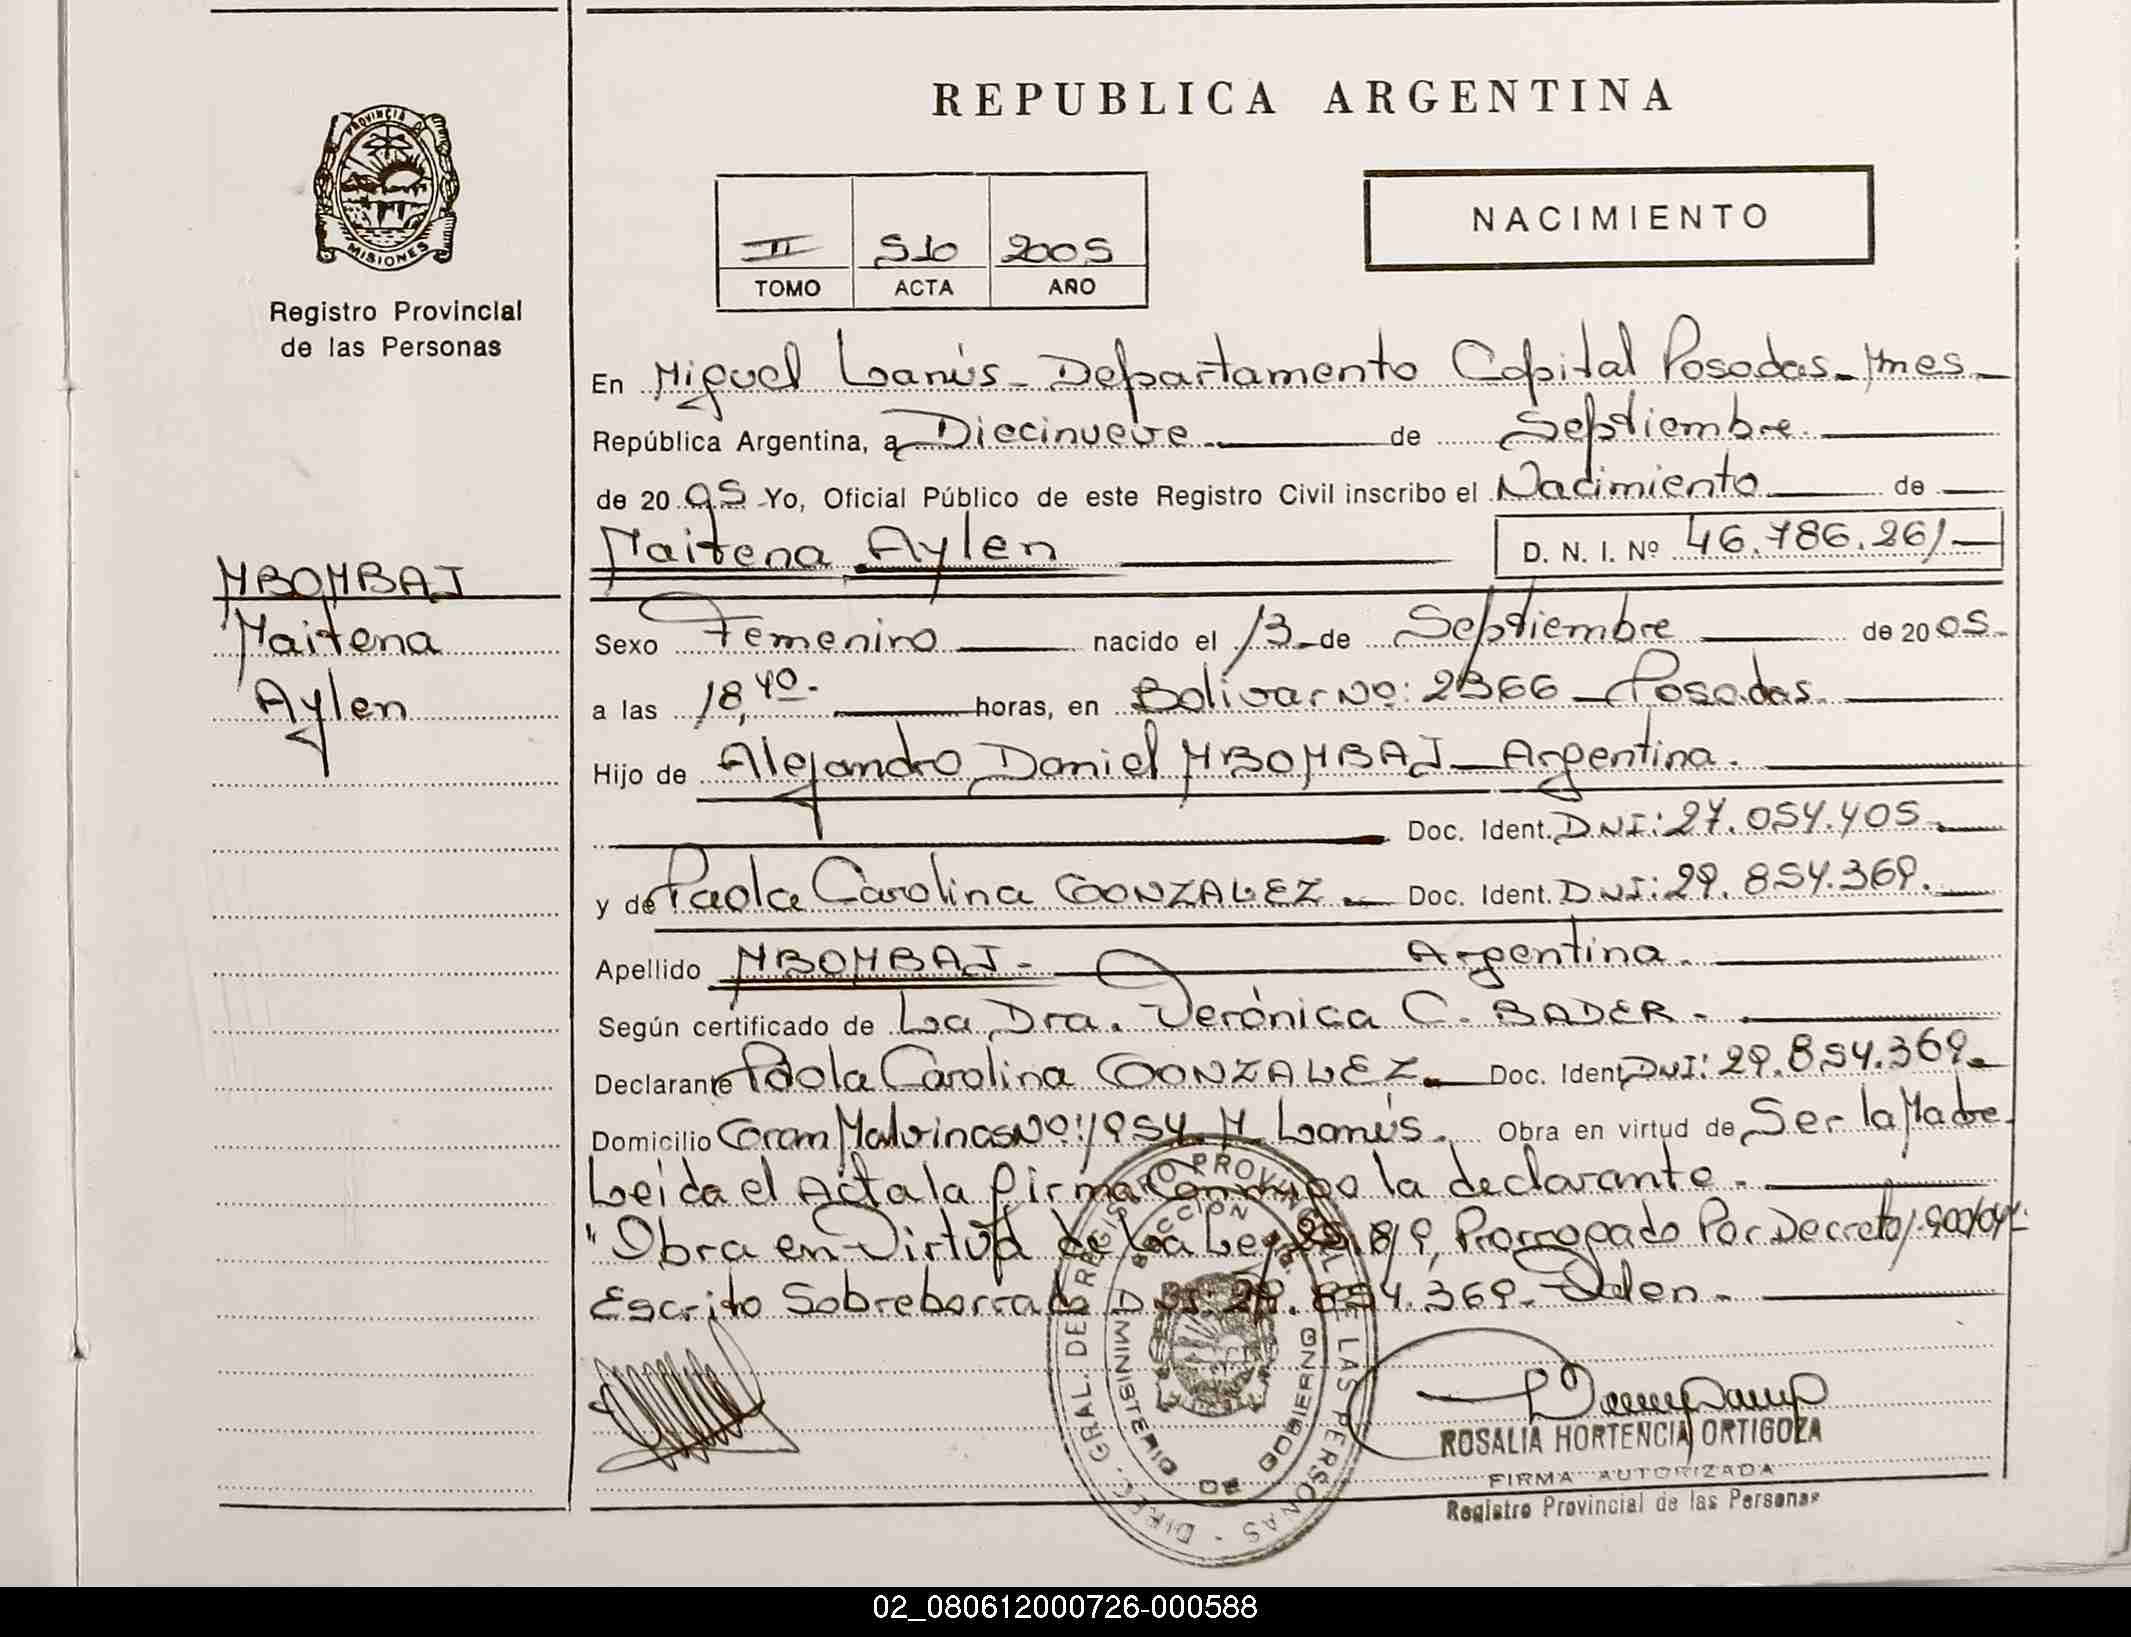 REPUBLICA ARGENTINA
PROVINCIA DE
MISIONES
Registro Provincial
de las Personas
NACIMIENTO
II 510 2005
TOMO ACTA AÑO
En Miguel Lanús - Departamento Capital Posadas - Mnes -
República Argentina, a Diecinueve de Septiembre.
de 20 05 Yo, Oficial Público de este Registro Civil inscribo el Nacimiento de
Maitena Aylen D. N. I. Nº 46.786.261
MBOMBAJ
Maitena
Aylen
Sexo Femenino nacido el 13 de Septiembre de 20 05.
a las 18,40. horas, en Bolivar Nº: 2366 - Posadas.
Hijo de Alejandro Daniel MBOMBAJ - Argentina.
Doc. Ident. DNI: 27.054.405.
y de Paola Carolina GONZALEZ - Doc. Ident. DNI: 29.854.369.
Apellido MBOMBAJ - Argentina.
Según certificado de La Dra. Verónica C. BADER -
Declarante Paola Carolina GONZALEZ - Doc. Ident. DNI: 29.854.369.
Domicilio Coram Malvinas Nº: 1954. M. Lanús. Obra en virtud de Ser la Madre.
Leida el Acta la firma Conmigo la declarante.
"Obra en Virtud de La Ley 25.819, Prorrogado Por Decreto
Escrito Sobreborrado DNI: 29.854.369. Valen.
DIREC. GRAL. DE REGISTRO PROVINCIAL DE LAS PERSONAS
MINISTERIO DE GOBIERNO
ROSALIA HORTENCIA ORTIGOZA
FIRMA AUTORIZADA
Registro Provincial de las Personas
02_080612000726-000588